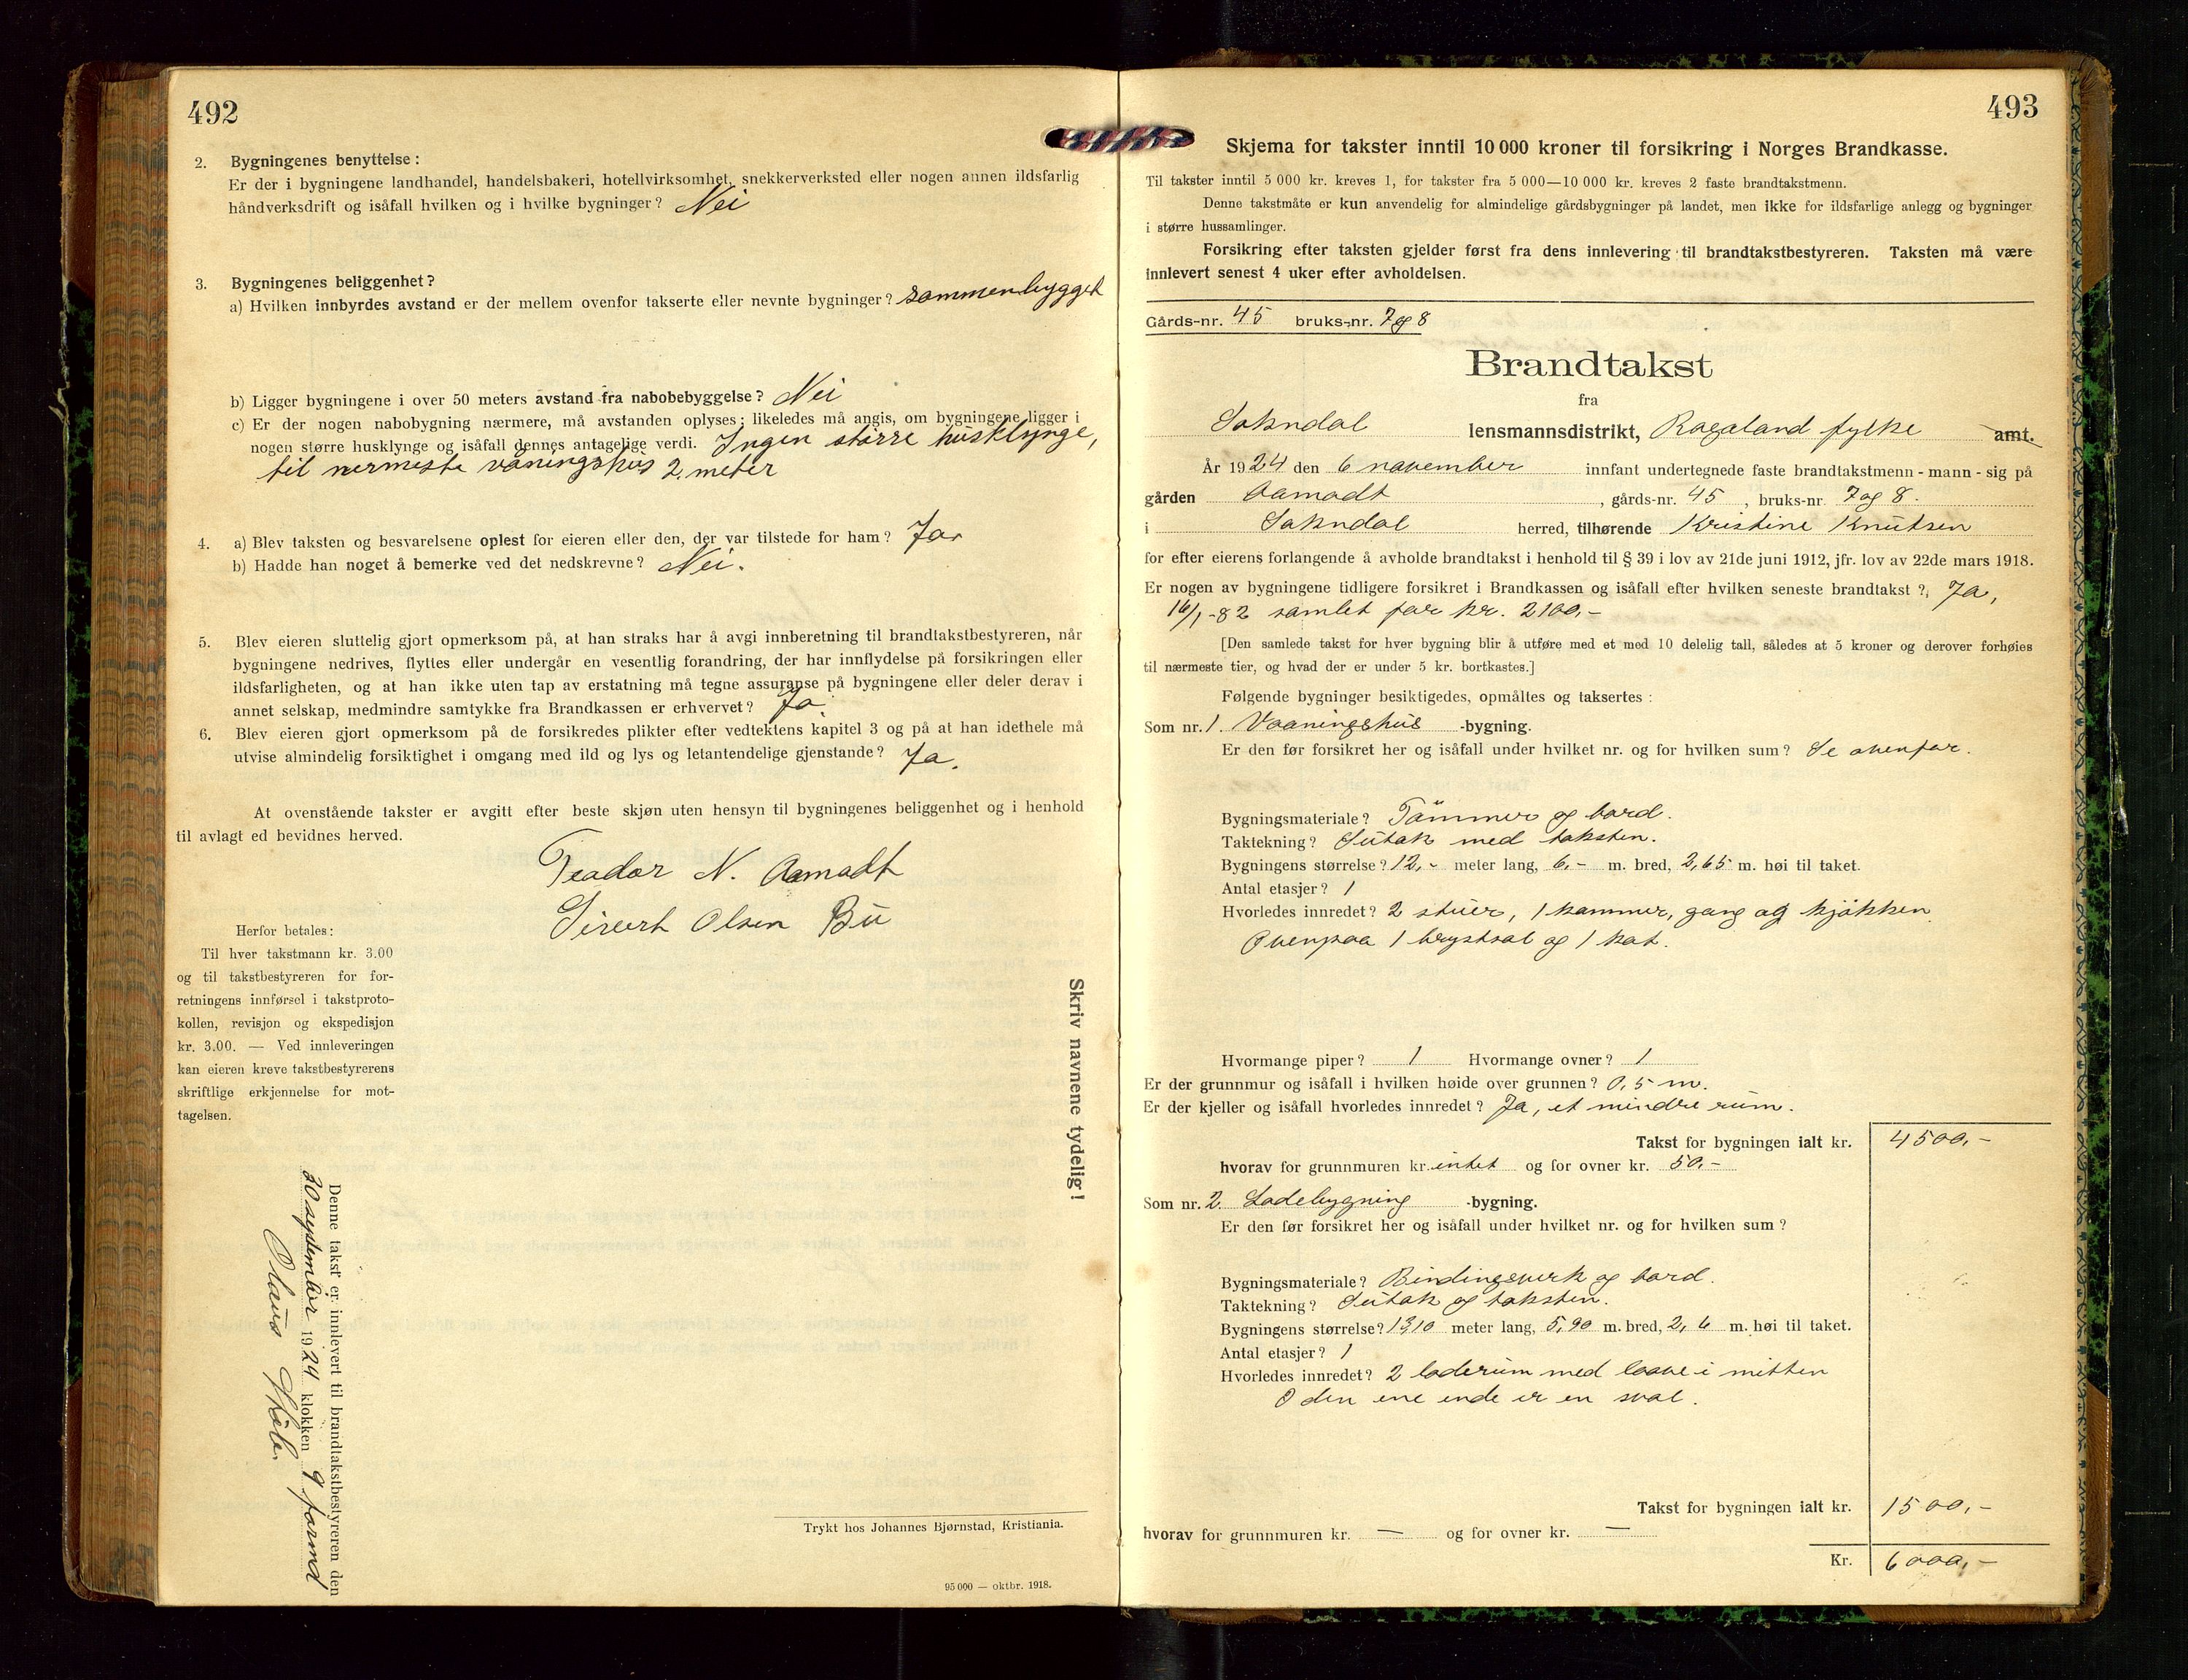 492
2. Bygningenes benyttelse:
Er der i bygningene landhandel, handelsbakeri, hotellvirksomhet, snekkerverksted eller nogen annen ildsfarlig
håndverksdrift og isåfall hvilken og i hvilke bygninger? Nei
3. Bygningenes beliggenhet?
a) Hvilken innbyrdes avstand er der mellem ovenfor takserte eller nevnte bygninger? sammenbygget
b) Ligger bygningene i over 50 meters avstand fra nabobebyggelse? Nei
c) Er der nogen nabobygning nærmere, må avstanden oplyses; likeledes må angis, om bygningene ligger i
nogen større husklynge og isåfall dennes antagelige verdi. Ingen større husklynge,
til nermeste våningshus 2 meter
4. a) Blev taksten og besvarelsene oplest for eieren eller den, der var tilstede for ham? Ja
b) Hadde han noget å bemerke ved det nedskrevne? Nei.
5. Blev eieren sluttelig gjort opmerksom på, at han straks har å avgi innberetning til brandtakstbestyreren, når
bygningene nedrives, flyttes eller undergår en vesentlig forandring, der har innflydelse på forsikringen eller
ildsfarligheten, og at han ikke uten tap av erstatning må tegne assuranse på bygningene eller deler derav i
annet selskap, medmindre samtykke fra Brandkassen er erhvervet? Ja
6. Blev eieren gjort opmerksom på de forsikredes plikter efter vedtektens kapitel 3 og på at han idethele må
utvise almindelig forsiktighet i omgang med ild og lys og letantendelige gjenstande? Ja.
At ovenstående takster er avgitt efter beste skjøn uten hensyn til bygningenes beliggenhet og i henhold
til avlagt ed bevidnes herved.
Teodor N. Aamodt
Sivert Olsen Bu
Herfor betales:
Til hver takstmann kr. 3.00
og til takstbestyreren for for-
retningens innførsel i takstproto-
kollen, revisjon og ekspedisjon
kr. 3.00. — Ved innleveringen
kan eieren kreve takstbestyrerens
skriftlige erkjennelse for mot-
tagelsen.
Skriv navnene tydelig!
Denne takst er innlevert til brandtakstbestyreren den
20 september 1924 klokken 9 formd
Olaus
Trykt hos Johannes Bjørnstad, Kristiania.
95 000 — oktbr. 1918.
493
Skjema for takster inntil 10 000 kroner til forsikring i Norges Brandkasse.
Til takster inntil 5 000 kr. kreves 1, for takster fra 5 000—10 000 kr. kreves 2 faste brandtakstmenn.
Denne takstmåte er kun anvendelig for almindelige gårdsbygninger på landet, men ikke for ildsfarlige anlegg og bygninger
i større hussamlinger.
Forsikring efter taksten gjelder først fra dens innlevering til brandtakstbestyreren. Taksten må være
innlevert senest 4 uker efter avholdelsen.
Gårds-nr. 45 bruks-nr. 7 og 8
Brandtakst
fra
Sokndal lensmannsdistrikt, Rogaland fylke amt.
År 1924 den 6 november innfant undertegnede faste brandtakstmenn - mann - sig på
gården Aamodt, gårds-nr. 45, bruks-nr. 7 og 8.
i Sokndal herred, tilhørende Kristine Knutsen
for efter eierens forlangende å avholde brandtakst i henhold til § 39 i lov av 21de juni 1912, jfr. lov av 22de mars 1918.
Er nogen av bygningene tidligere forsikret i Brandkassen og isåfall efter hvilken seneste brandtakst? Ja,
16/1-82 samlet for kr. 2100,-
[Den samlede takst for hver bygning blir å utføre med et med 10 delelig tall, således at 5 kroner og derover forhøies
til nærmeste tier, og hvad der er under 5 kr. bortkastes.]
Følgende bygninger besiktigedes, opmåltes og taksertes:
Som nr. 1. Vaaningshus -bygning.
Er den før forsikret her og isåfall under hvilket nr. og for hvilken sum? Se ovenfor.
Bygningsmateriale? Tömmer og bord.
Taktekning? Sutak med taksten.
Bygningens størrelse? 12,- meter lang, 6,- m. bred, 2,65 m. høi til taket.
Antal etasjer? 1
Hvorledes innredet? 2 stuer, 1 kammer, gang og kjøkken
Ovenpaa 1 brystsal og 1 kot.
Hvormange piper? 1 Hvormange ovner? 1
Er der grunnmur og isåfall i hvilken høide over grunnen? 0,5 m.
Er der kjeller og isåfall hvorledes innredet? Ja, et mindre rum.
Takst for bygningen ialt kr. 4500,-
hvorav for grunnmuren kr. intet og for ovner kr. 50,-
Som nr. 2. Ladebygning -bygning.
Er den før forsikret her og isåfall under hvilket nr. og for hvilken sum?
Bygningsmateriale? Bindingsverk og bord.
Taktekning? Sutak og taksten.
Bygningens størrelse? 13,10 meter lang, 5,90 m. bred, 2,6 m. høi til taket.
Antal etasjer? 1
Hvorledes innredet? 2 laderum med loave i mitten
I den ene ende er en sval.
Takst for bygningen ialt kr. 1500,-
hvorav for grunnmuren kr. — og for ovner kr. —
Kr. 6000,-